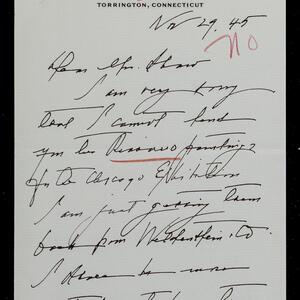 TORRINGTON, CONNECTICUT
Nov 29. 45
NO
Dear Mr. Shaw
I am very sorry
that I cannot lend
you the Rosario paintings
for the Chicago Exhibition
I am just getting them
back from Wildenstein & Co.
I have to